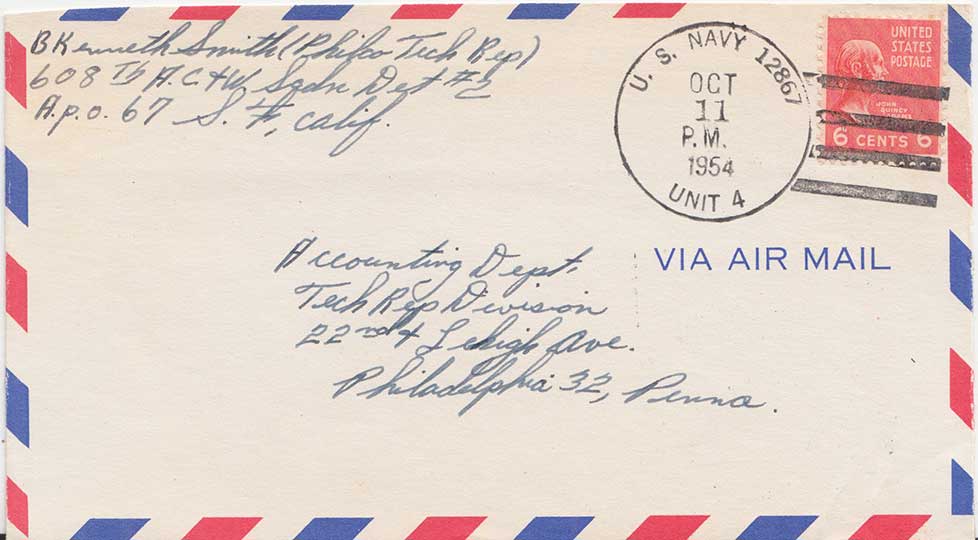 B Kenneth Smith (Philco Tech Rep)
608 Th A.C.+W Sqdn Det #2
A.p.o. 67 S. F, Calif.
U. S. NAVY 12867
OCT
11
P.M.
1954
UNIT 4
UNITED
STATES
POSTAGE
JOHN
QUINCY
ADAMS
6¢ CENTS 6
VIA AIR MAIL
Accounting Dept.
Tech Rep Division
22nd + Lehigh Ave.
Philadelphia 32, Penna.